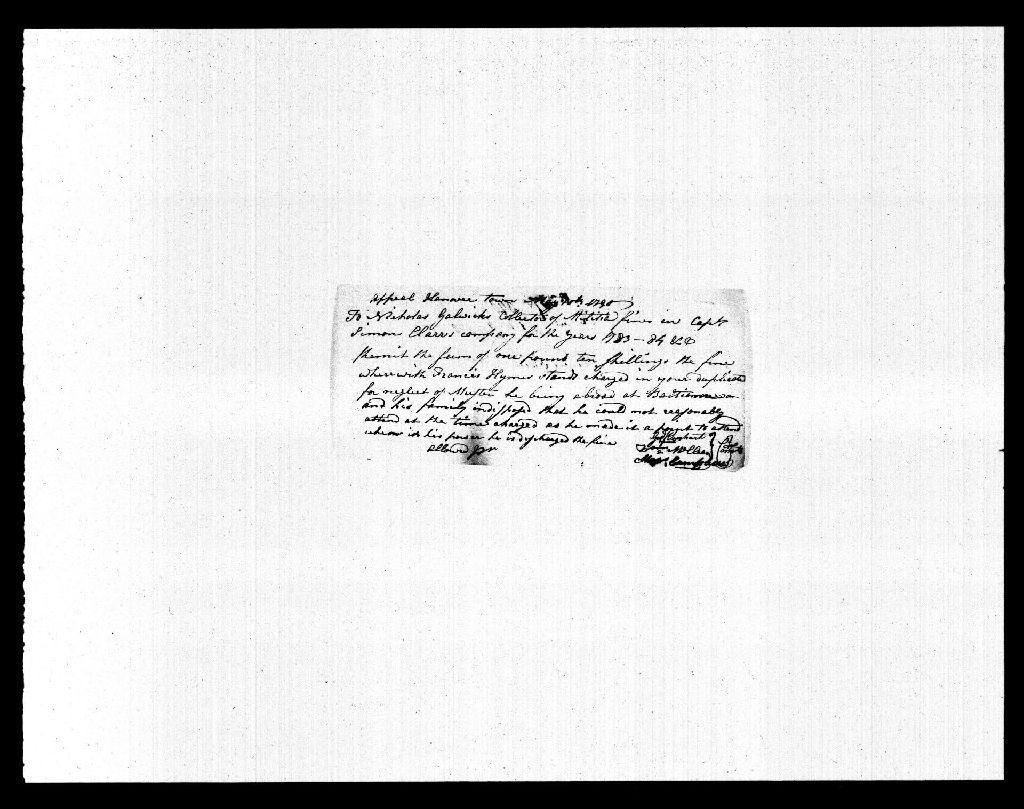 Appeal Hanover town 1790
To Nicholas Galwicks Collector of Militia fines in Capt
Simon Clares company for the Years 1783 - 84 &c
Remit the sum of one pound ten shillings the fine
wherewith Francis Hymer stands charged in your duplicate
for neglect of Muster he being abroad at Baltimore
and his family indisposed that he could not reasonably
attend at the time charged as he made it a point to attend
when in his power he is discharged the fine
allowed